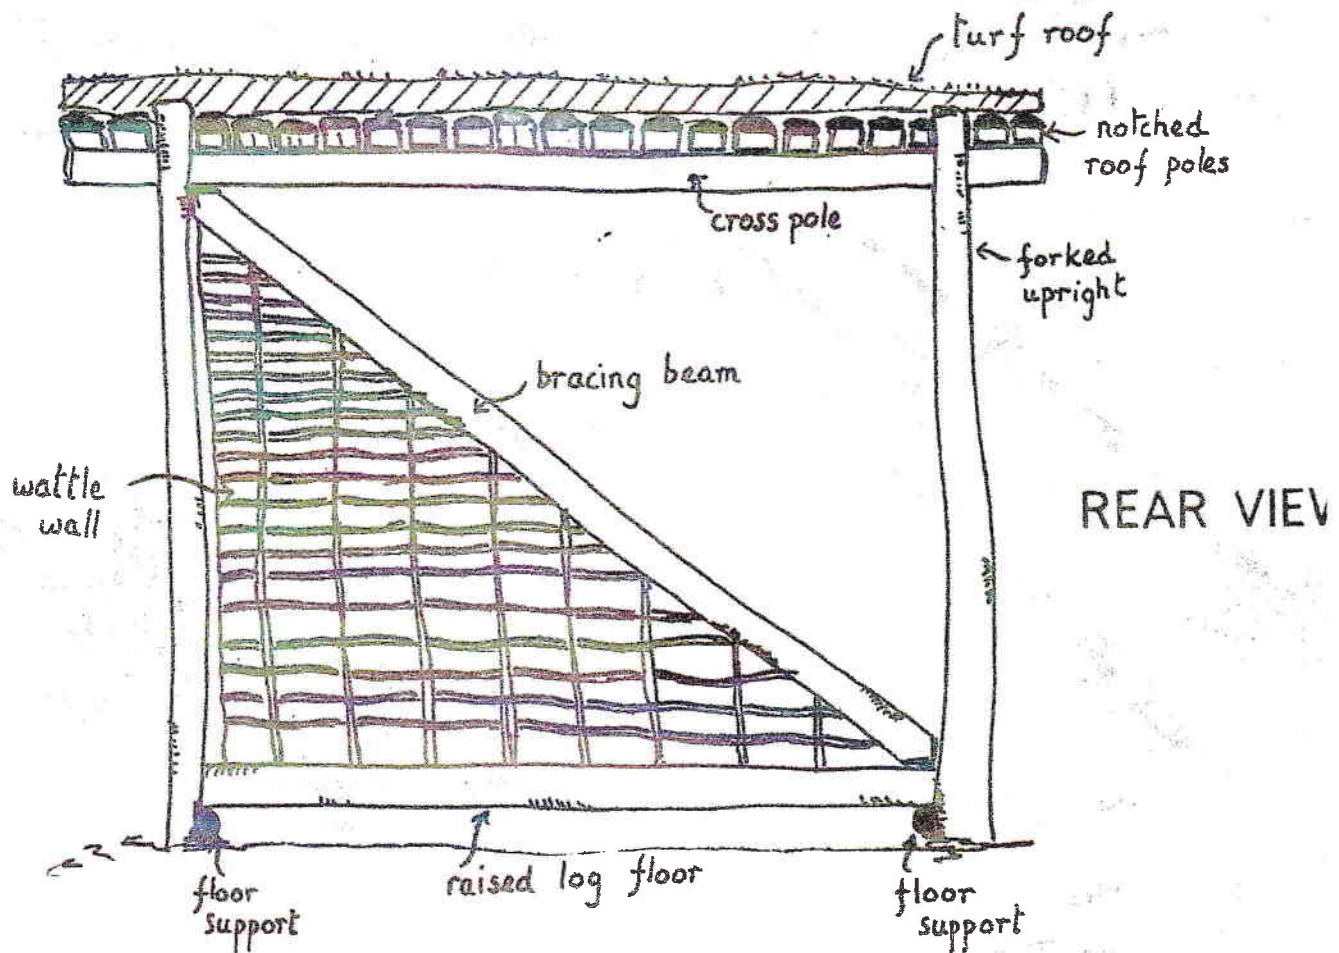 turf roof
notched
roof poles
cross pole
forked
upright
bracing beam
wattle
wall
REAR VIEW
floor
support
raised log floor
floor
support